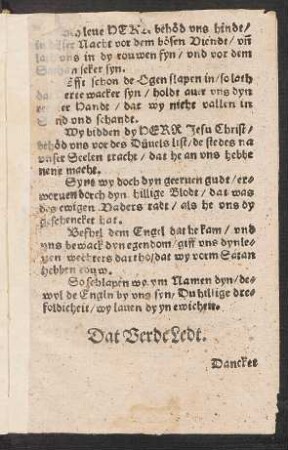 leue HERR behöd vns hindt/
Nacht vor dem bösen Viendt/ vn̄
vns in dy rouwen syn/ vnd vor dem
seker syn.
Efft schon de Ogen slapen in/ so lath
dat herte wacker syn/ holdt auer vns dyn
Handt/ dat wy nicht vallen in
Sünd vnd schandt.
Wy bidden dy HERR Jesu Christ/
behöd vns vor des Düuels list/ de stedes na
vnser Seelen tracht/ dat he an vns hebbe
nene macht.
Synt wy doch dyn geeruen gudt/ er-
woruen dorch dyn hillige Blodt/ dat was
des ewigen Vaders radt/ als he vns dy
geschencket hat.
Befhel dem Engel dat he kam/ vnd
vns bewack dyn egendom/ giff vns dyn le-
uen wechters dartho/ dat wy vorm Satan
hebben rouw.
So schlapen wy ym Namen dyn/ de-
wyl de Engln by vns syn/ Du hillige dre-
foldicheit/ wy lauen dy yn ewicheit.
Dat Verde Ledt.
Dancket